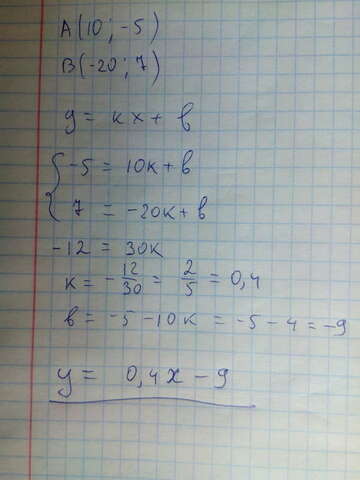 A(10; -5)
B(-20; 7)
y = кx + в
{ -5 = 10к + в
7 = -20к + в
-12 = 30к
к = -12/30 = 2/5 = 0,4
в = -5 - 10к = -5 - 4 = -9
y = 0,4x - 9